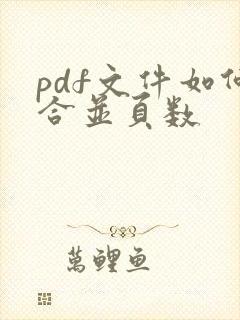 pdf文件如何
合並頁数
萬鲤鱼